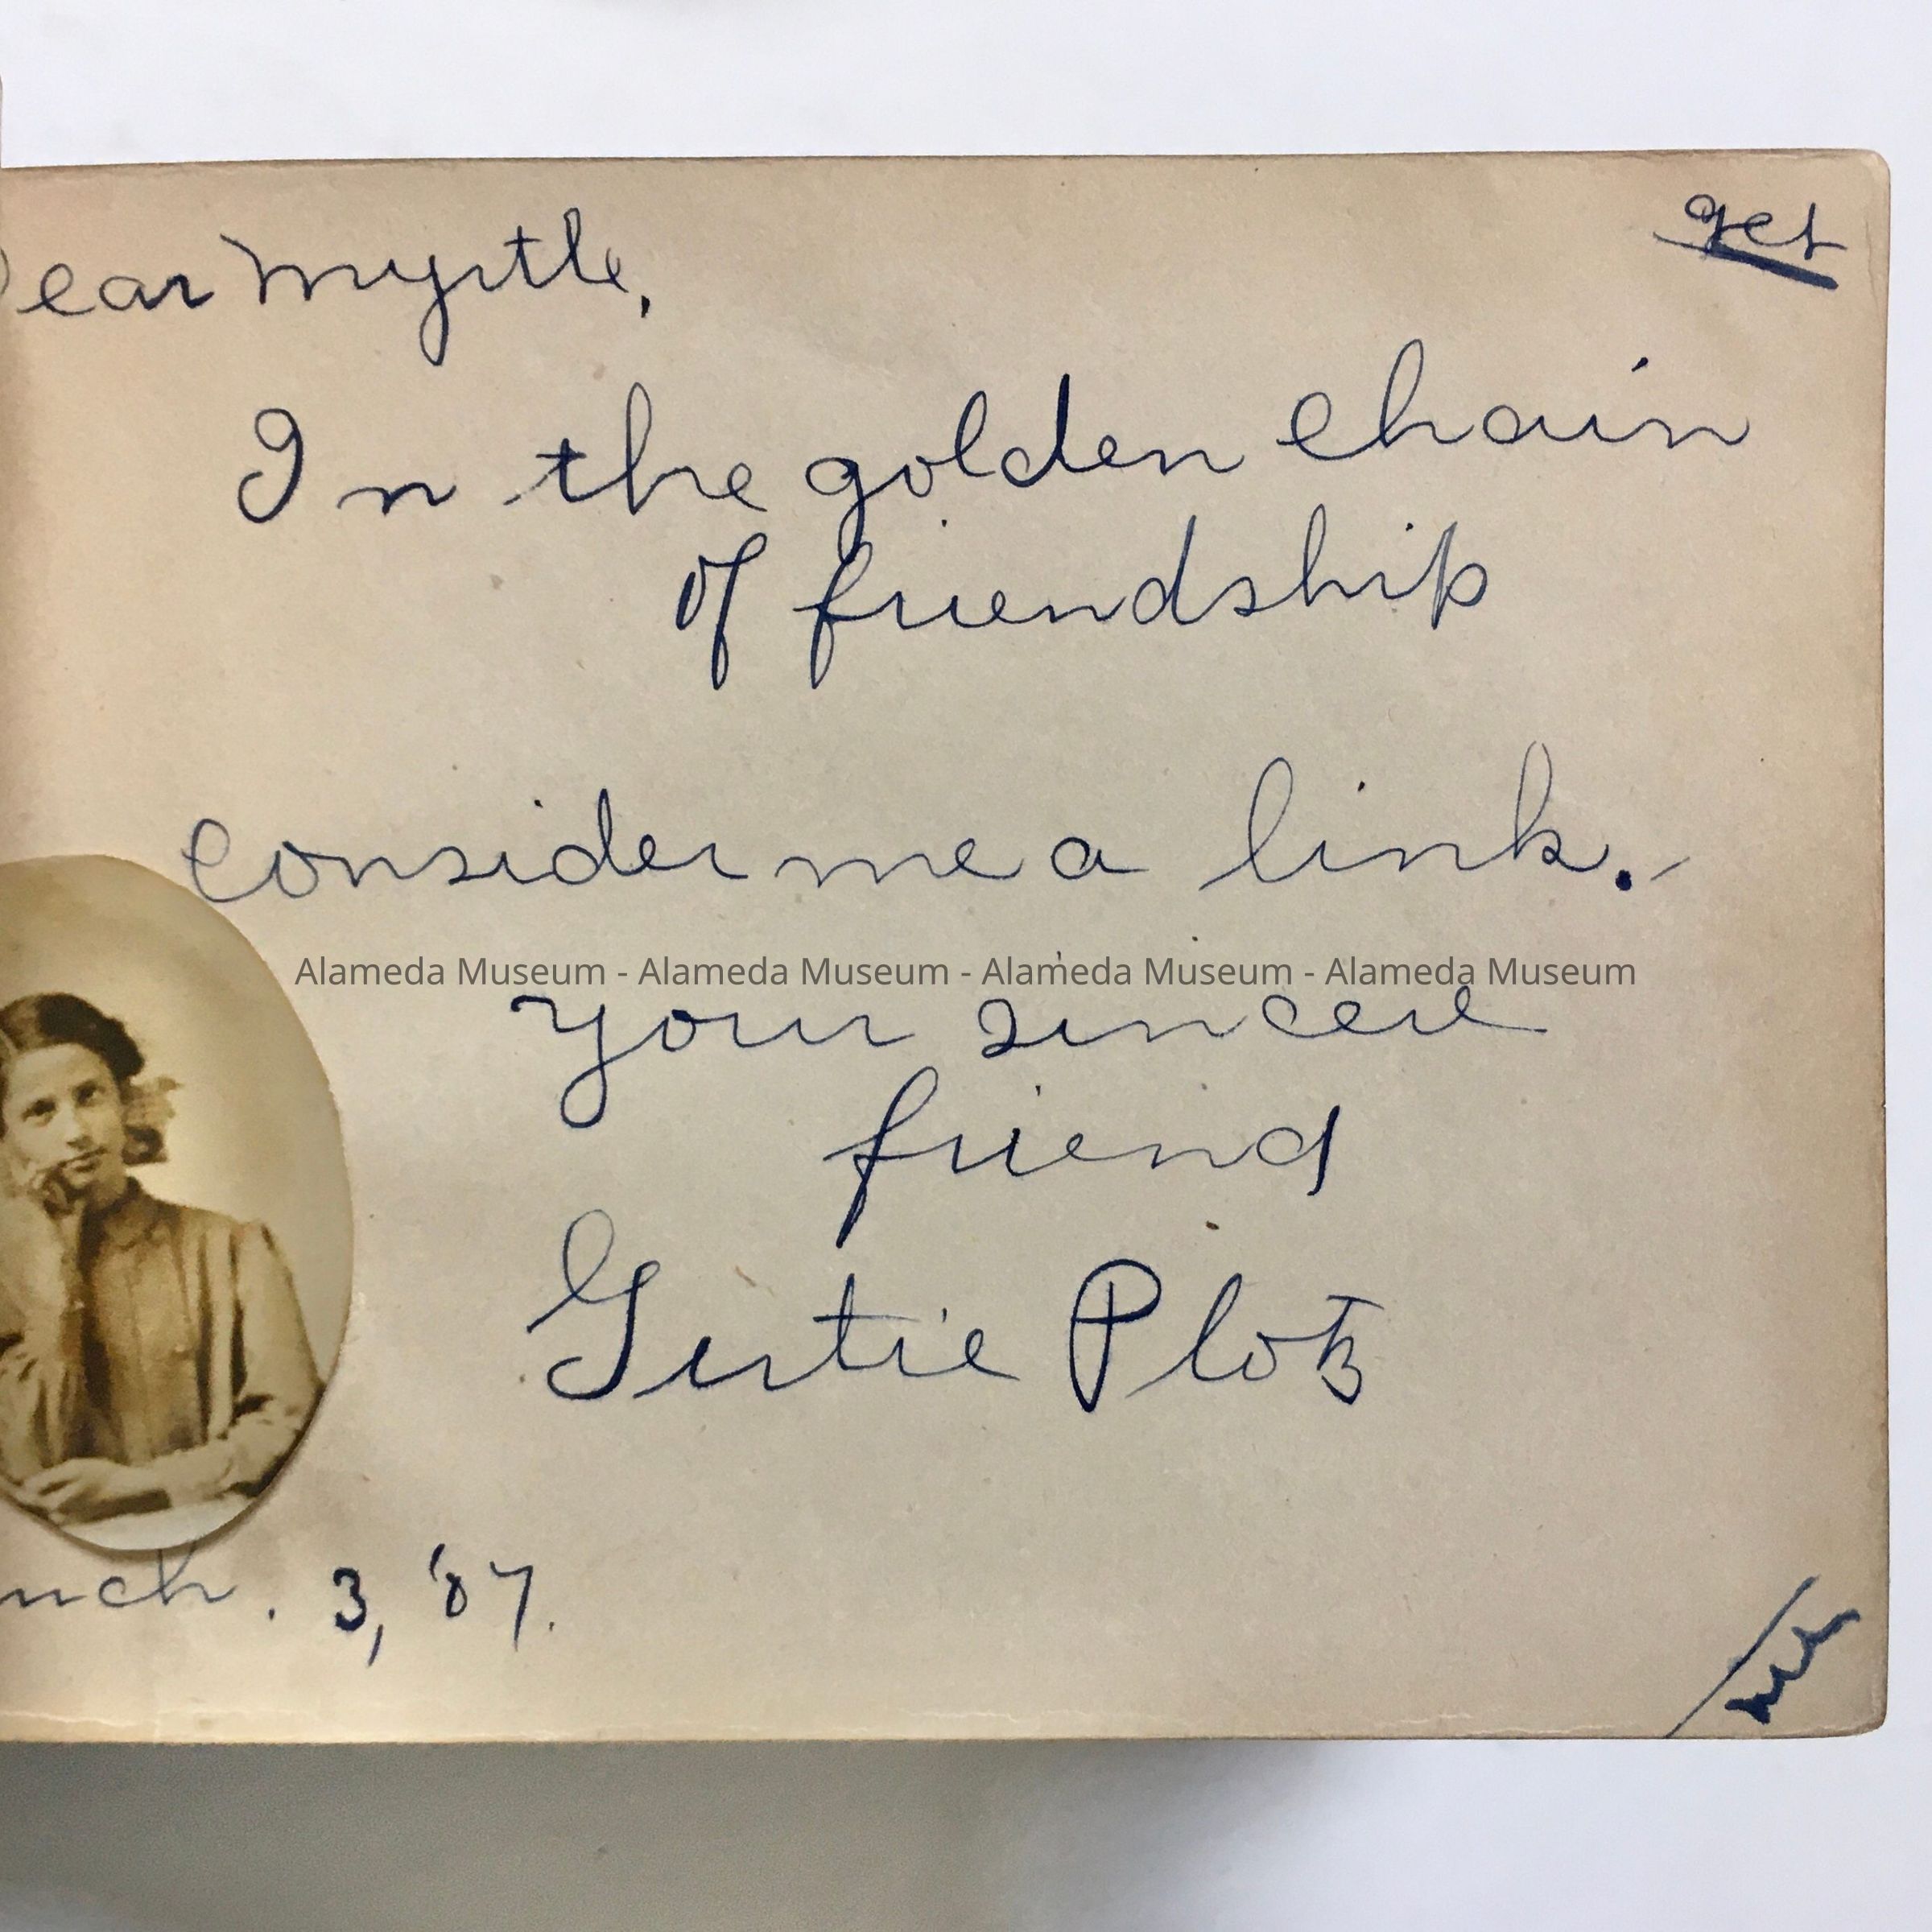 Dear Myrtle,
get
In the golden chain
of friendship
consider me a link.
Alameda Museum - Alameda Museum - Alameda Museum - Alameda Museum
Your sincere
friend
Gertie Plotz
3, '07.